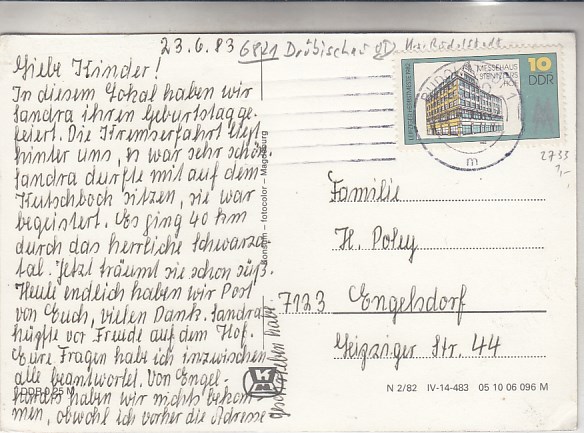 23.6.83 6821 Döbischau Kr. Rudolstadt
Liebe Kinder!
In diesem Lokal haben wir
Sandra ihren Geburtstag ge-
feiert. Die Kremserfahrt liegt
hinter uns, es war sehr schön.
Sandra durfte mit auf dem
Kutschbock sitzen, sie war
begeistert. Es ging 40 km
durch das herrliche Schwarza-
tal. Jetzt träumt sie schon süß.
Heute endlich haben wir Post
von Euch, vielen Dank. Sandra
hüpfte vor Freude auf dem Hof.
Eure Fragen habe ich inzwischen
alle beantwortet. Von Engel-
hardts haben wir nichts bekom-
men, obwohl ich vorher die Adresse
geschrieben habe.
MESSEHAUS
STENTZLERS
HOF
10
DDR
2733
1,-
Familie
H. Poley
7123 Engelsdorf
Leipziger Str. 44
fotocolor – Magdeburg
N 2/82 IV-14-483 05 10 06 096 M